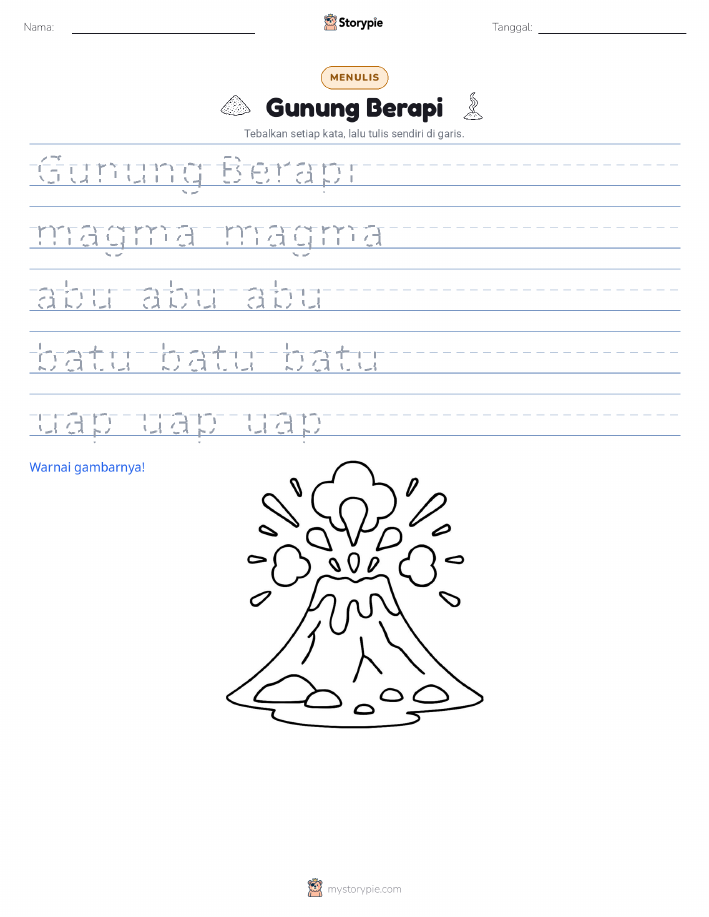 Nama:
Storypie
Tanggal:
MENULIS
Gunung Berapi
Tebalkan setiap kata, lalu tulis sendiri di garis.
Gunung Berapi
magma magma
abu abu abu
batu batu batu
uap uap uap
Warnai gambarnya!
mystorypie.com